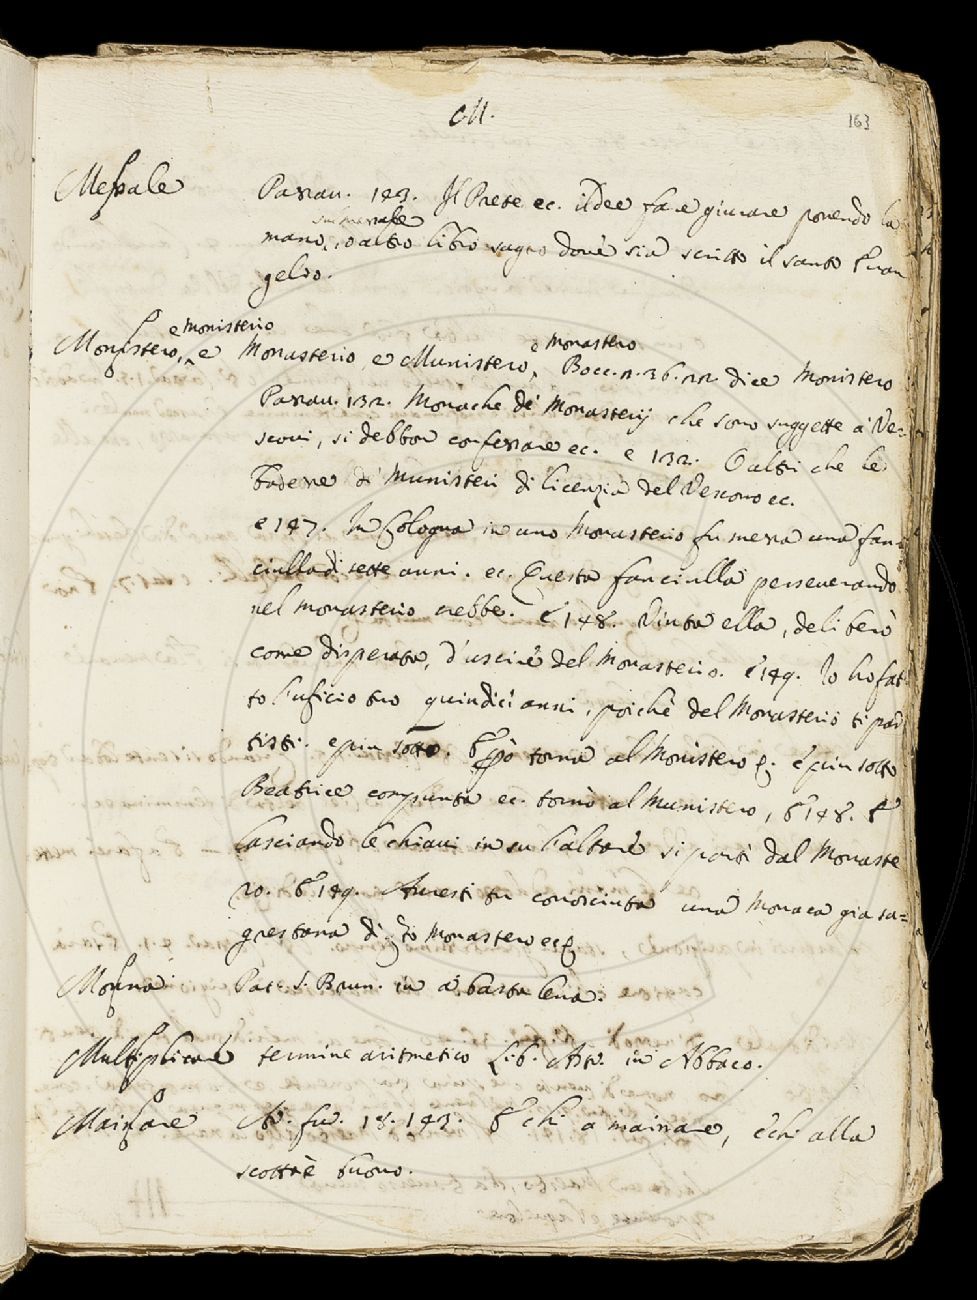 M.
163
Messale Passau. 143. Il Prete ec. il dee fare giurare ponendo la
sul messale
mano, o altro libro sagro dove sia scritto il santo Evan
gelio.
e Monisterio e Monastero
Monistero, e Monasterio, e Munistero, Bocc. n. 36. 22. dice Monistero
Passau. 132. Monache de' Monasterij che sono suggette a' Ve=
scovi, si debbon confessare ec. e 132. O altri che le
Badesse di Munisteri di licenzia del Vescovo ec.
e 147. In Bologna in uno Monasterio fu messa una fan
ciulla di sette anni. ec. Questa fanciulla perseverando
nel Monasterio crebbe. E 148. Vinta ella, deliberò
come disperata, d'uscire del Monasterio. E 149. Io ho fat
to l'uficio tuo quindici anni, poichè del Monasterio ti par
tisti. e piu sotto. torna al Monistero e piu sotto
Beatrice compunta ec. tornò al Munistero, E 148. E
lasciando le chiavi in su l'altare si partì dal Monaste
ro. E 149. Avresti tu conosciuta una Monaca gia sa=
grestana di Monastero ec
Monna Pat. S. Brun. in a basta lena.
Multiplicare termine aritmetico Lib. Astr. in Abbaco.
Mainare fir. 18. 143. E chi a mainare, e chi alla
scotta è buono.